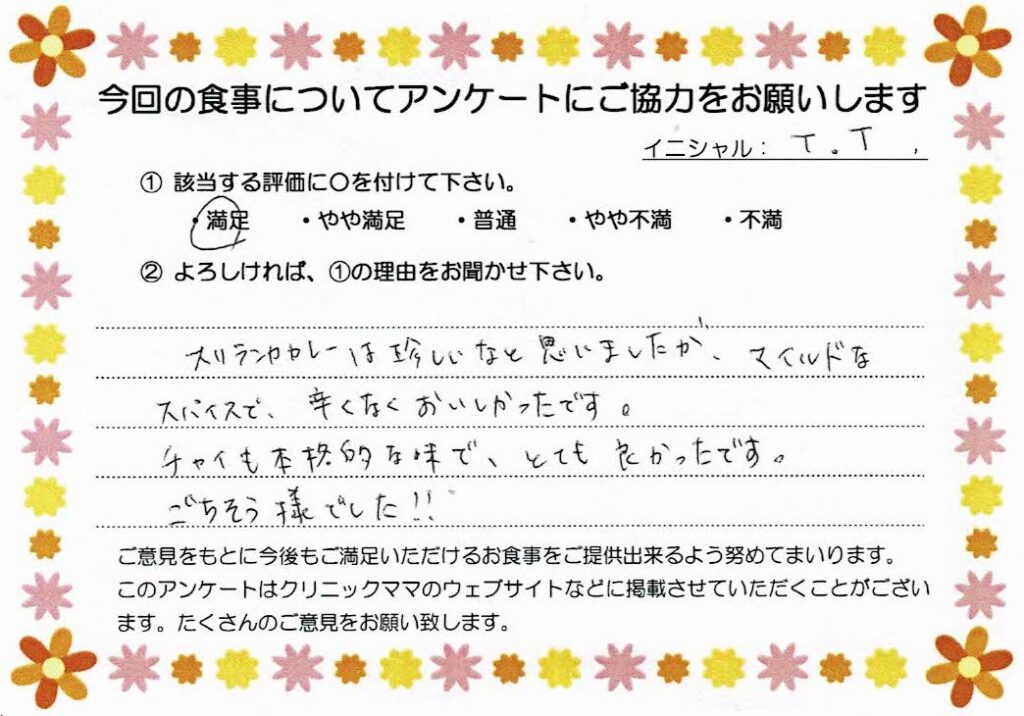 今回の食事についてアンケートにご協力をお願いします
イニシャル： T.T
① 該当する評価に〇を付けて下さい。
・満足 ・やや満足 ・普通 ・やや不満 ・不満
② よろしければ、①の理由をお聞かせ下さい。
スリランカカレーは珍しいなと思いましたが、マイルドな
スパイスで、辛くなくおいしかったです。
チャイも本格的な味で、とても良かったです。
ごちそう様でした!!
ご意見をもとに今後もご満足いただけるお食事をご提供出来るよう努めてまいります。
このアンケートはクリニックママのウェブサイトなどに掲載させていただくことがござい
ます。たくさんのご意見をお願い致します。